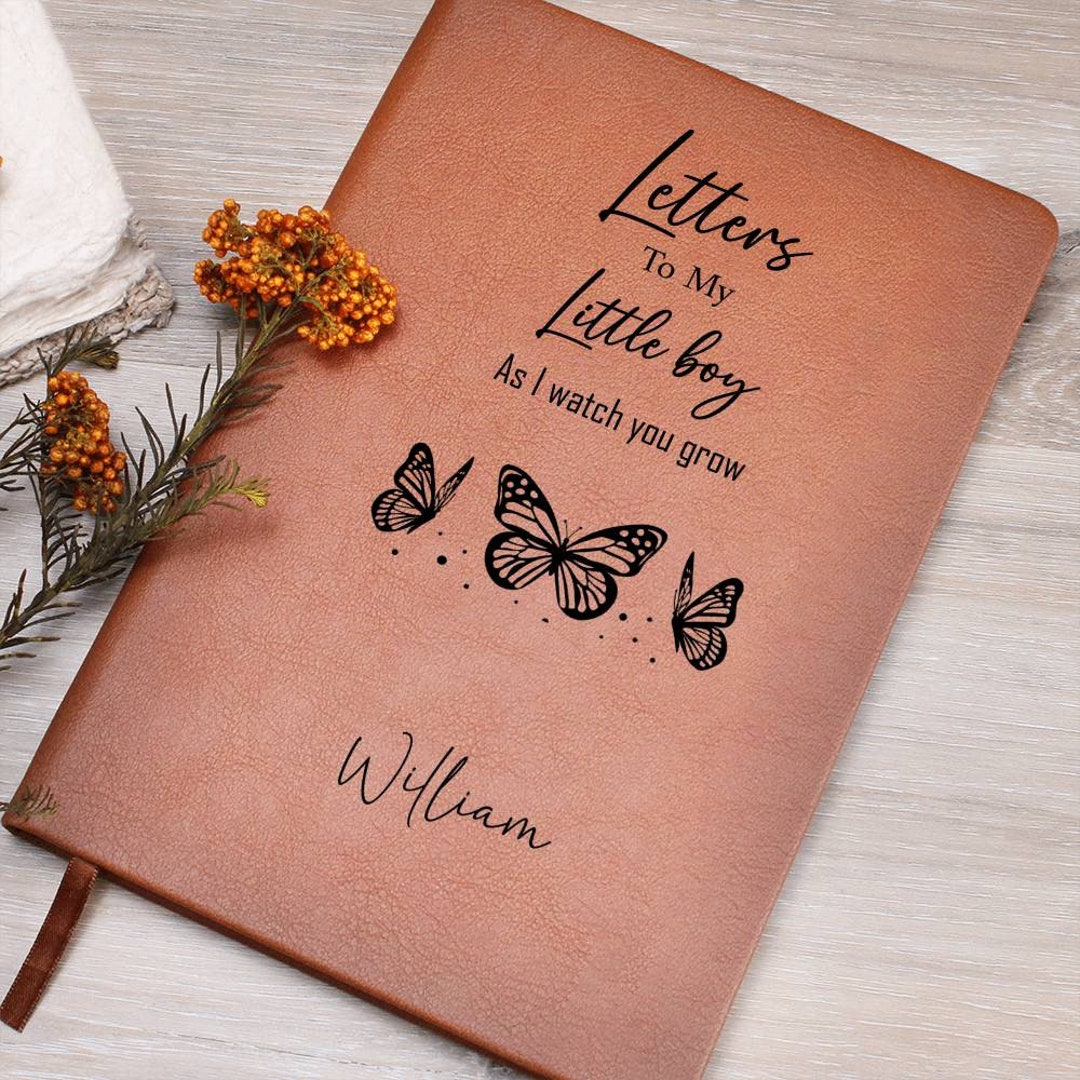 Letters
To My
Little boy
As I watch you grow
William